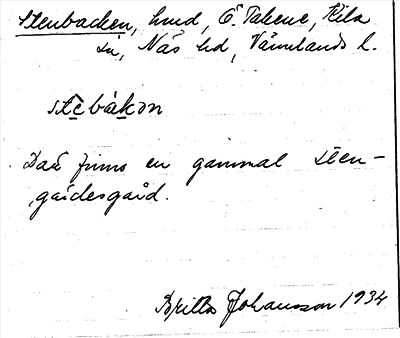 Stenbacken, hmd, Ö. Takene, Kila
sn, Näs hd, Värmlands l.
stèbàkən
Där finns en gammal sten-
gärdesgård.
Britta Johansson 1934